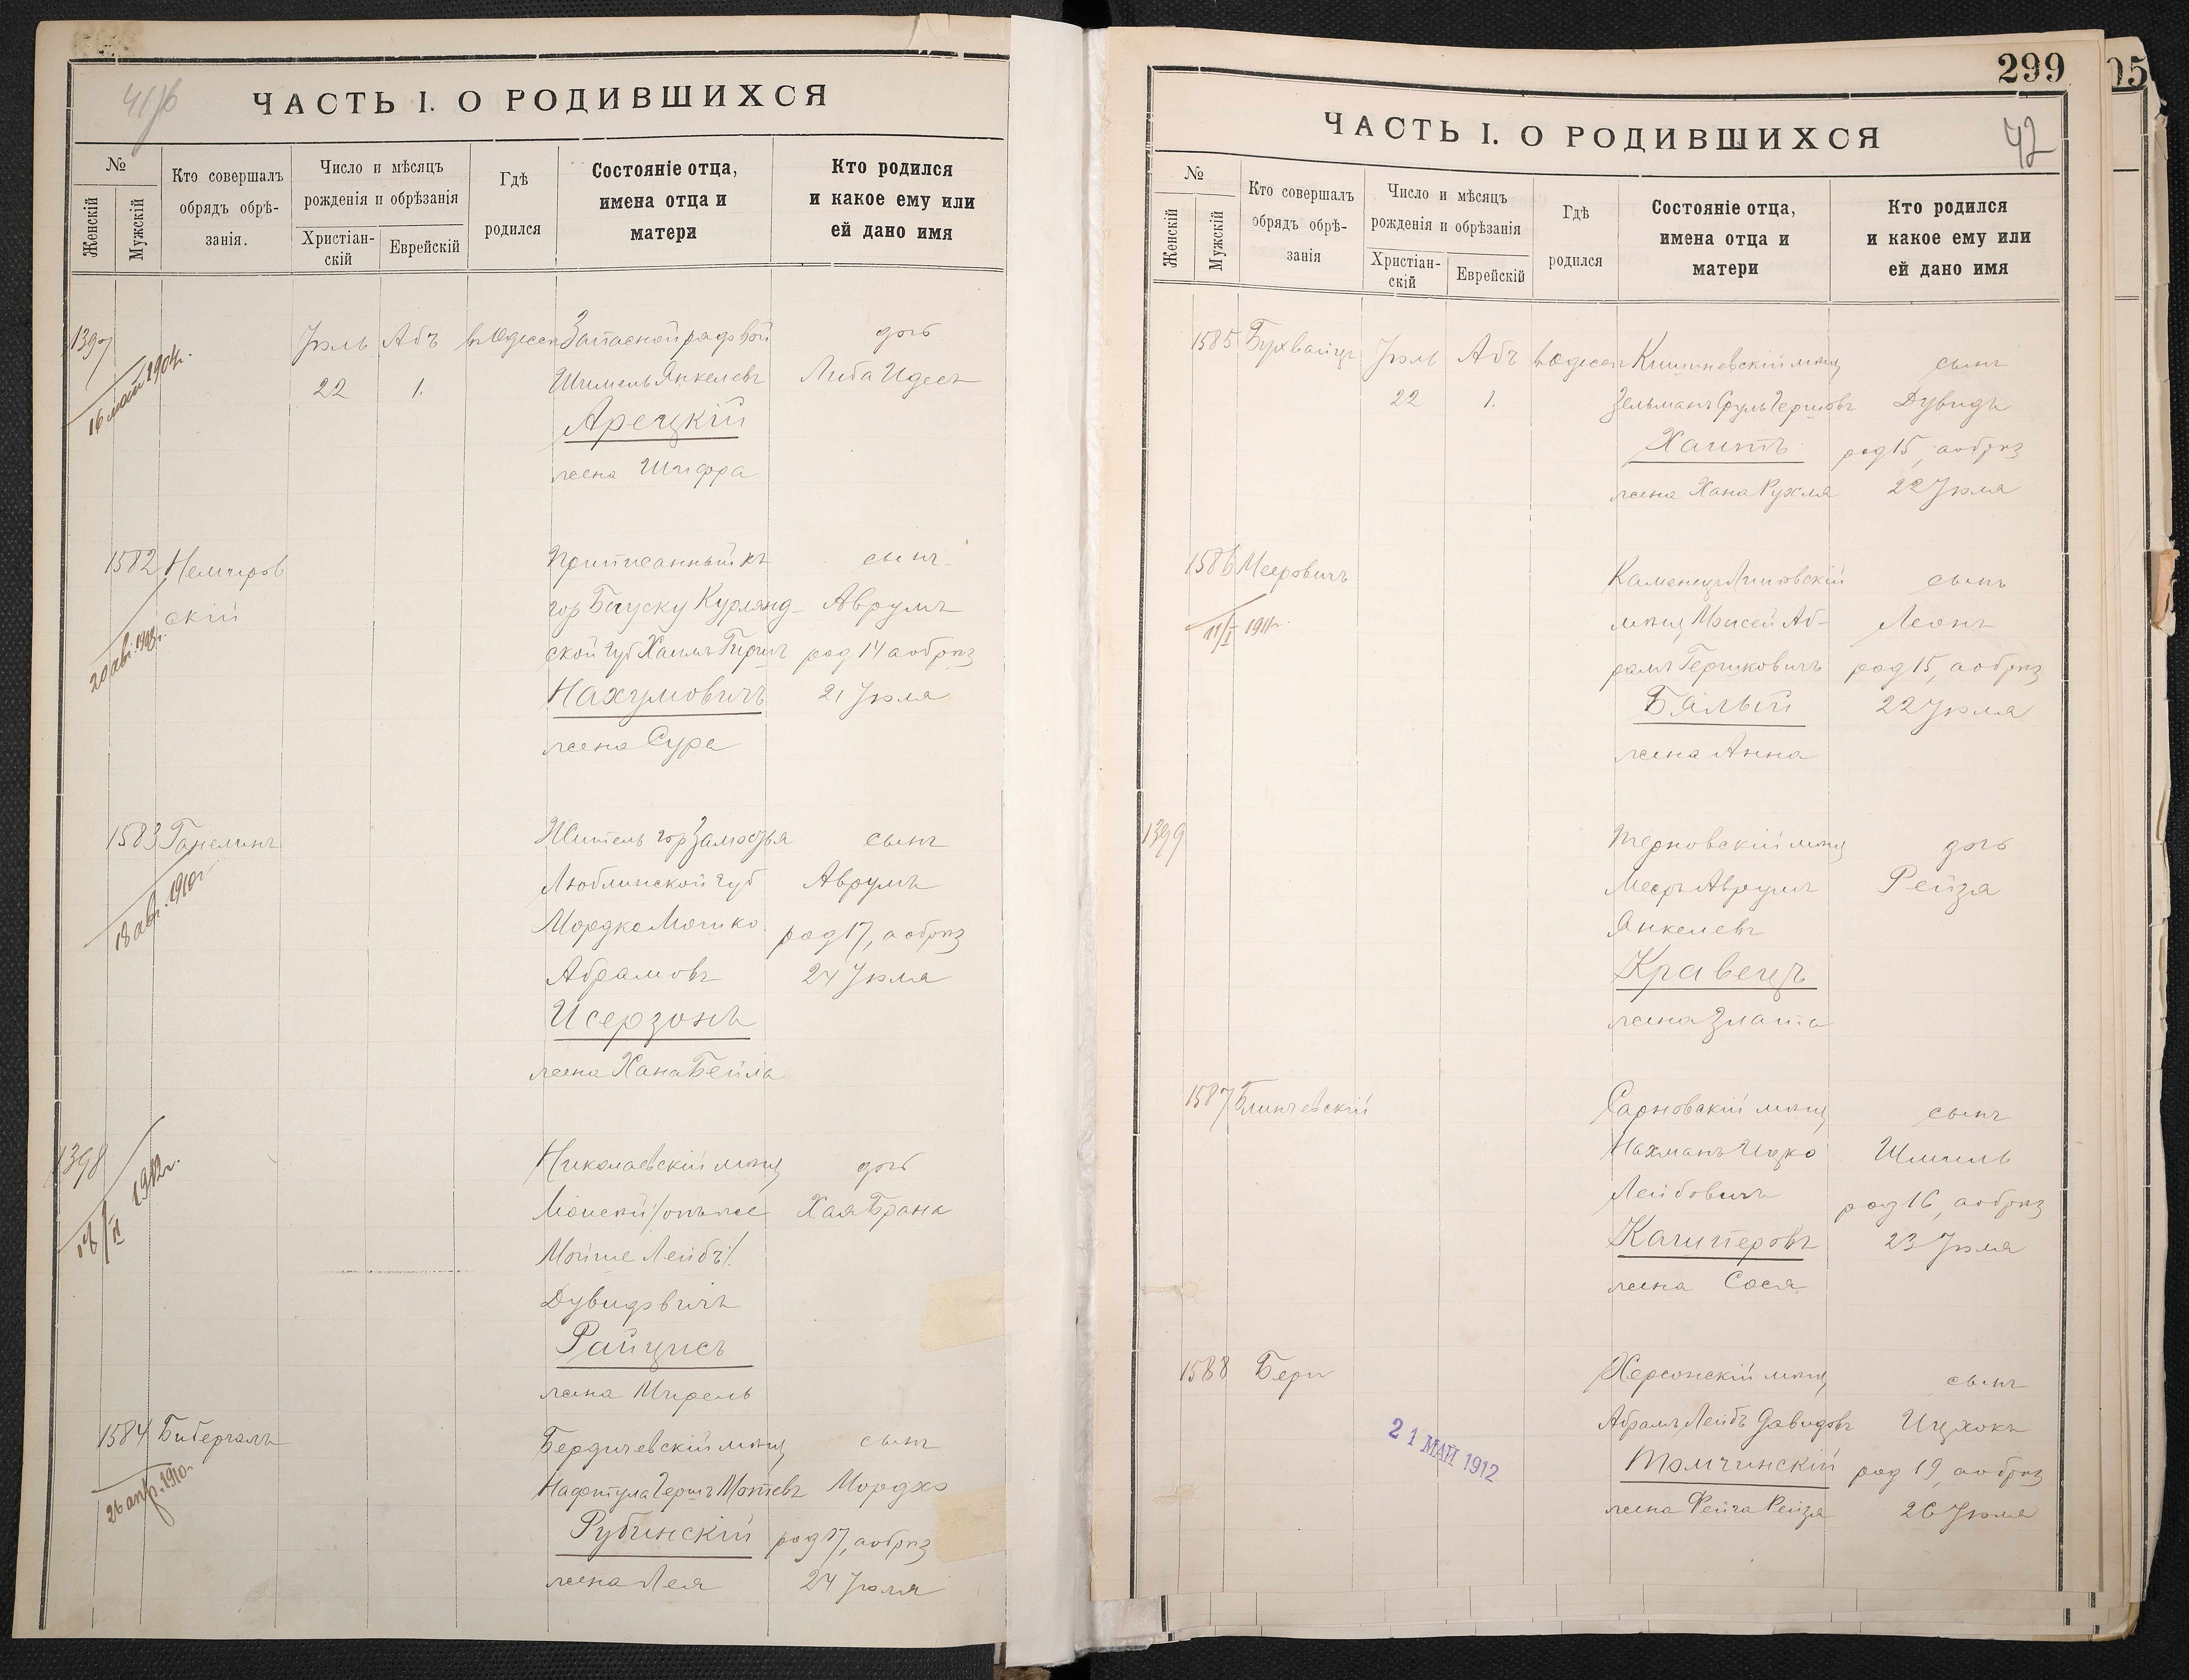 41 об
ЧАСТЬ I. О РОДИВШИХСЯ
№
Женскій
Мужскій
Кто совершалъ
обрядъ обрѣ-
занія.
Число и мѣсяцъ
рожденія и обрѣзанія
Христіан-
скій
Еврейскій
Гдѣ
родился
Состояніе отца,
имена отца и
матери
Кто родился
и какое ему или
ей дано имя
1397
16 мая 1904г.
Іюль Абъ въ Одессѣ
22 1.
Запасной рядовой
Шмиль Янкелевъ
Арецкій
жена Шифра
дочь
Либа Идесъ
1582
20 авг. 1908г.
Немиров
скій
Приписанный къ
гор Бауску Курлянд-
ской губ Хаимъ Гиршъ
Нахумовичъ
жена Сура
сынъ
Аврумъ
род 14 а обрѣз
21 Іюля
1583
18 авг. 1910г.
Ганелинъ
Житель гор Замостья
Люблинской губ
Мордко Мошко
Абрамовъ
Исерзонъ
жена Хана Бейла
сынъ
Аврумъ
род 17, а обрѣз
24 Іюля
1398
1912г.
Николаевскій мѣщ
Моисей /онъ же
Мойше Лейбъ/
Дувидовичъ
Райцисъ
жена Мирель
дочь
Хая Брана
1584
26 апр. 1910г.
Бибергалъ
Бердичевскій мѣщ
Нафтула Гершъ Мотевъ
Рубинскій
жена Лея
сынъ
Мордхо
род 17, а обрѣз
24 Іюля
299
42
ЧАСТЬ I. О РОДИВШИХСЯ
№
Женскій
Мужскій
Кто совершалъ
обрядъ обрѣ-
занія
Число и мѣсяцъ
рожденія и обрѣзанія
Христіан-
скій
Еврейскій
Гдѣ
родился
Состояніе отца,
имена отца и
матери
Кто родился
и какое ему или
ей дано имя
1585
Бухвайцъ
Іюль Абъ въ Одессѣ
22 1.
Кишиневскій мѣщ
Зельманъ Сруль Гершовъ
Хаитъ
жена Хана Рухля
сынъ
Дувидъ
род 15, а обрѣз
22 Іюля
1586
11/I 1911г.
Мееровичъ
Каменецъ Литовскій
мѣщ Моисей Аб-
рамъ Гершковичъ
Бялый
жена Анна
сынъ
Леонъ
род 15, а обрѣз
22 Іюля
1399
Терновскій мѣщ
Мееръ Аврумъ
Янкелевъ
Кравецъ
жена Злата
дочь
Рейзя
1587
Блинчевскій
Сарновскій мѣщ
Нахманъ Ицко
Лейбовичъ
жена Сося
сынъ
Шмиль
род 16, а обрѣз
23 Іюля
1588
Бери
21 МАЙ 1912
Херсонскій мѣщ
Абрамъ Лейбъ Давидовъ
Томчинскій
жена Фейга Рейзя
сынъ
Ицхокъ
род 19, а обрѣз
26 Іюля